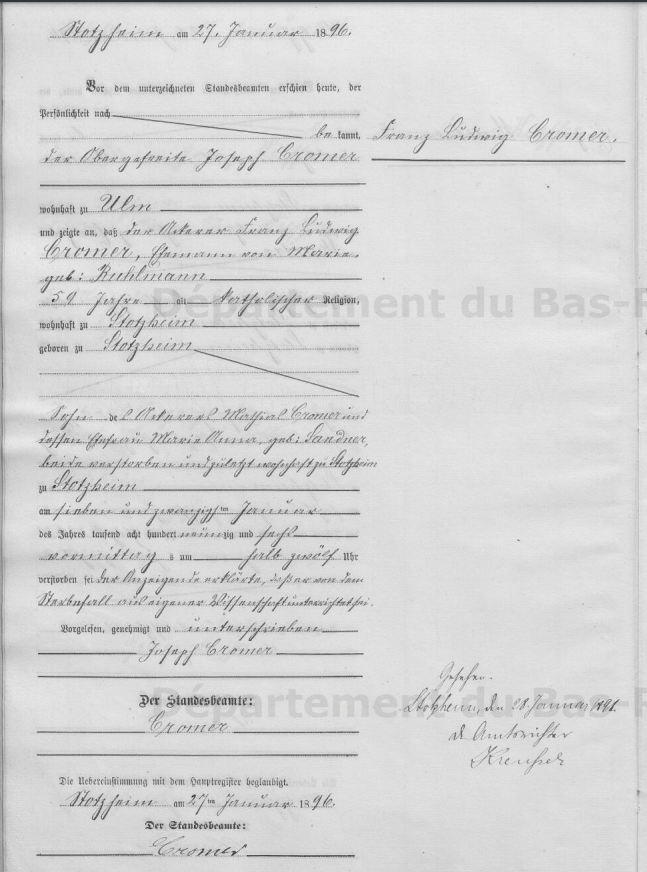 Stotzheim am 27. Januar 1896.
Vor dem unterzeichneten Standesbeamten erschien heute, der
Persönlichkeit nach
bekannt,
Franz Ludwig Cromer.
der Obergefreite Joseph Cromer
wohnhaft zu Ulm
und zeigte an, daß der Ackerer Franz Ludwig
Cromer, Ehemann von Marie,
geb: Kuhlmann
59 Jahre alt katholischer Religion,
wohnhaft zu Stotzheim
geboren zu Stotzheim
Sohn des Ackerers Mathias Cromer und
dessen Ehefrau Marie Anna, geb: Sandner,
beide verstorben und zuletzt wohnhaft zu Stotzheim
zu Stotzheim
am sieben und zwanzigsten Januar
des Jahres tausend acht hundert neunzig und sechs
vormittags um halb zwölf Uhr
verstorben sei der Anzeigende erklärte, daß er von dem
Sterbefall aus eigener Wissenschaft unterrichtet sei.
Vorgelesen, genehmigt und unterschrieben
Joseph Cromer
Der Standesbeamte:
Cromer
Die Uebereinstimmung mit dem Hauptregister beglaubigt.
Stotzheim am 27ten Januar 1896.
Der Standesbeamte:
Cromer
Gesehen.
Stotzheim, den 28. Januar
Amtsrichter
Département du Bas-R
Département du Bas-R